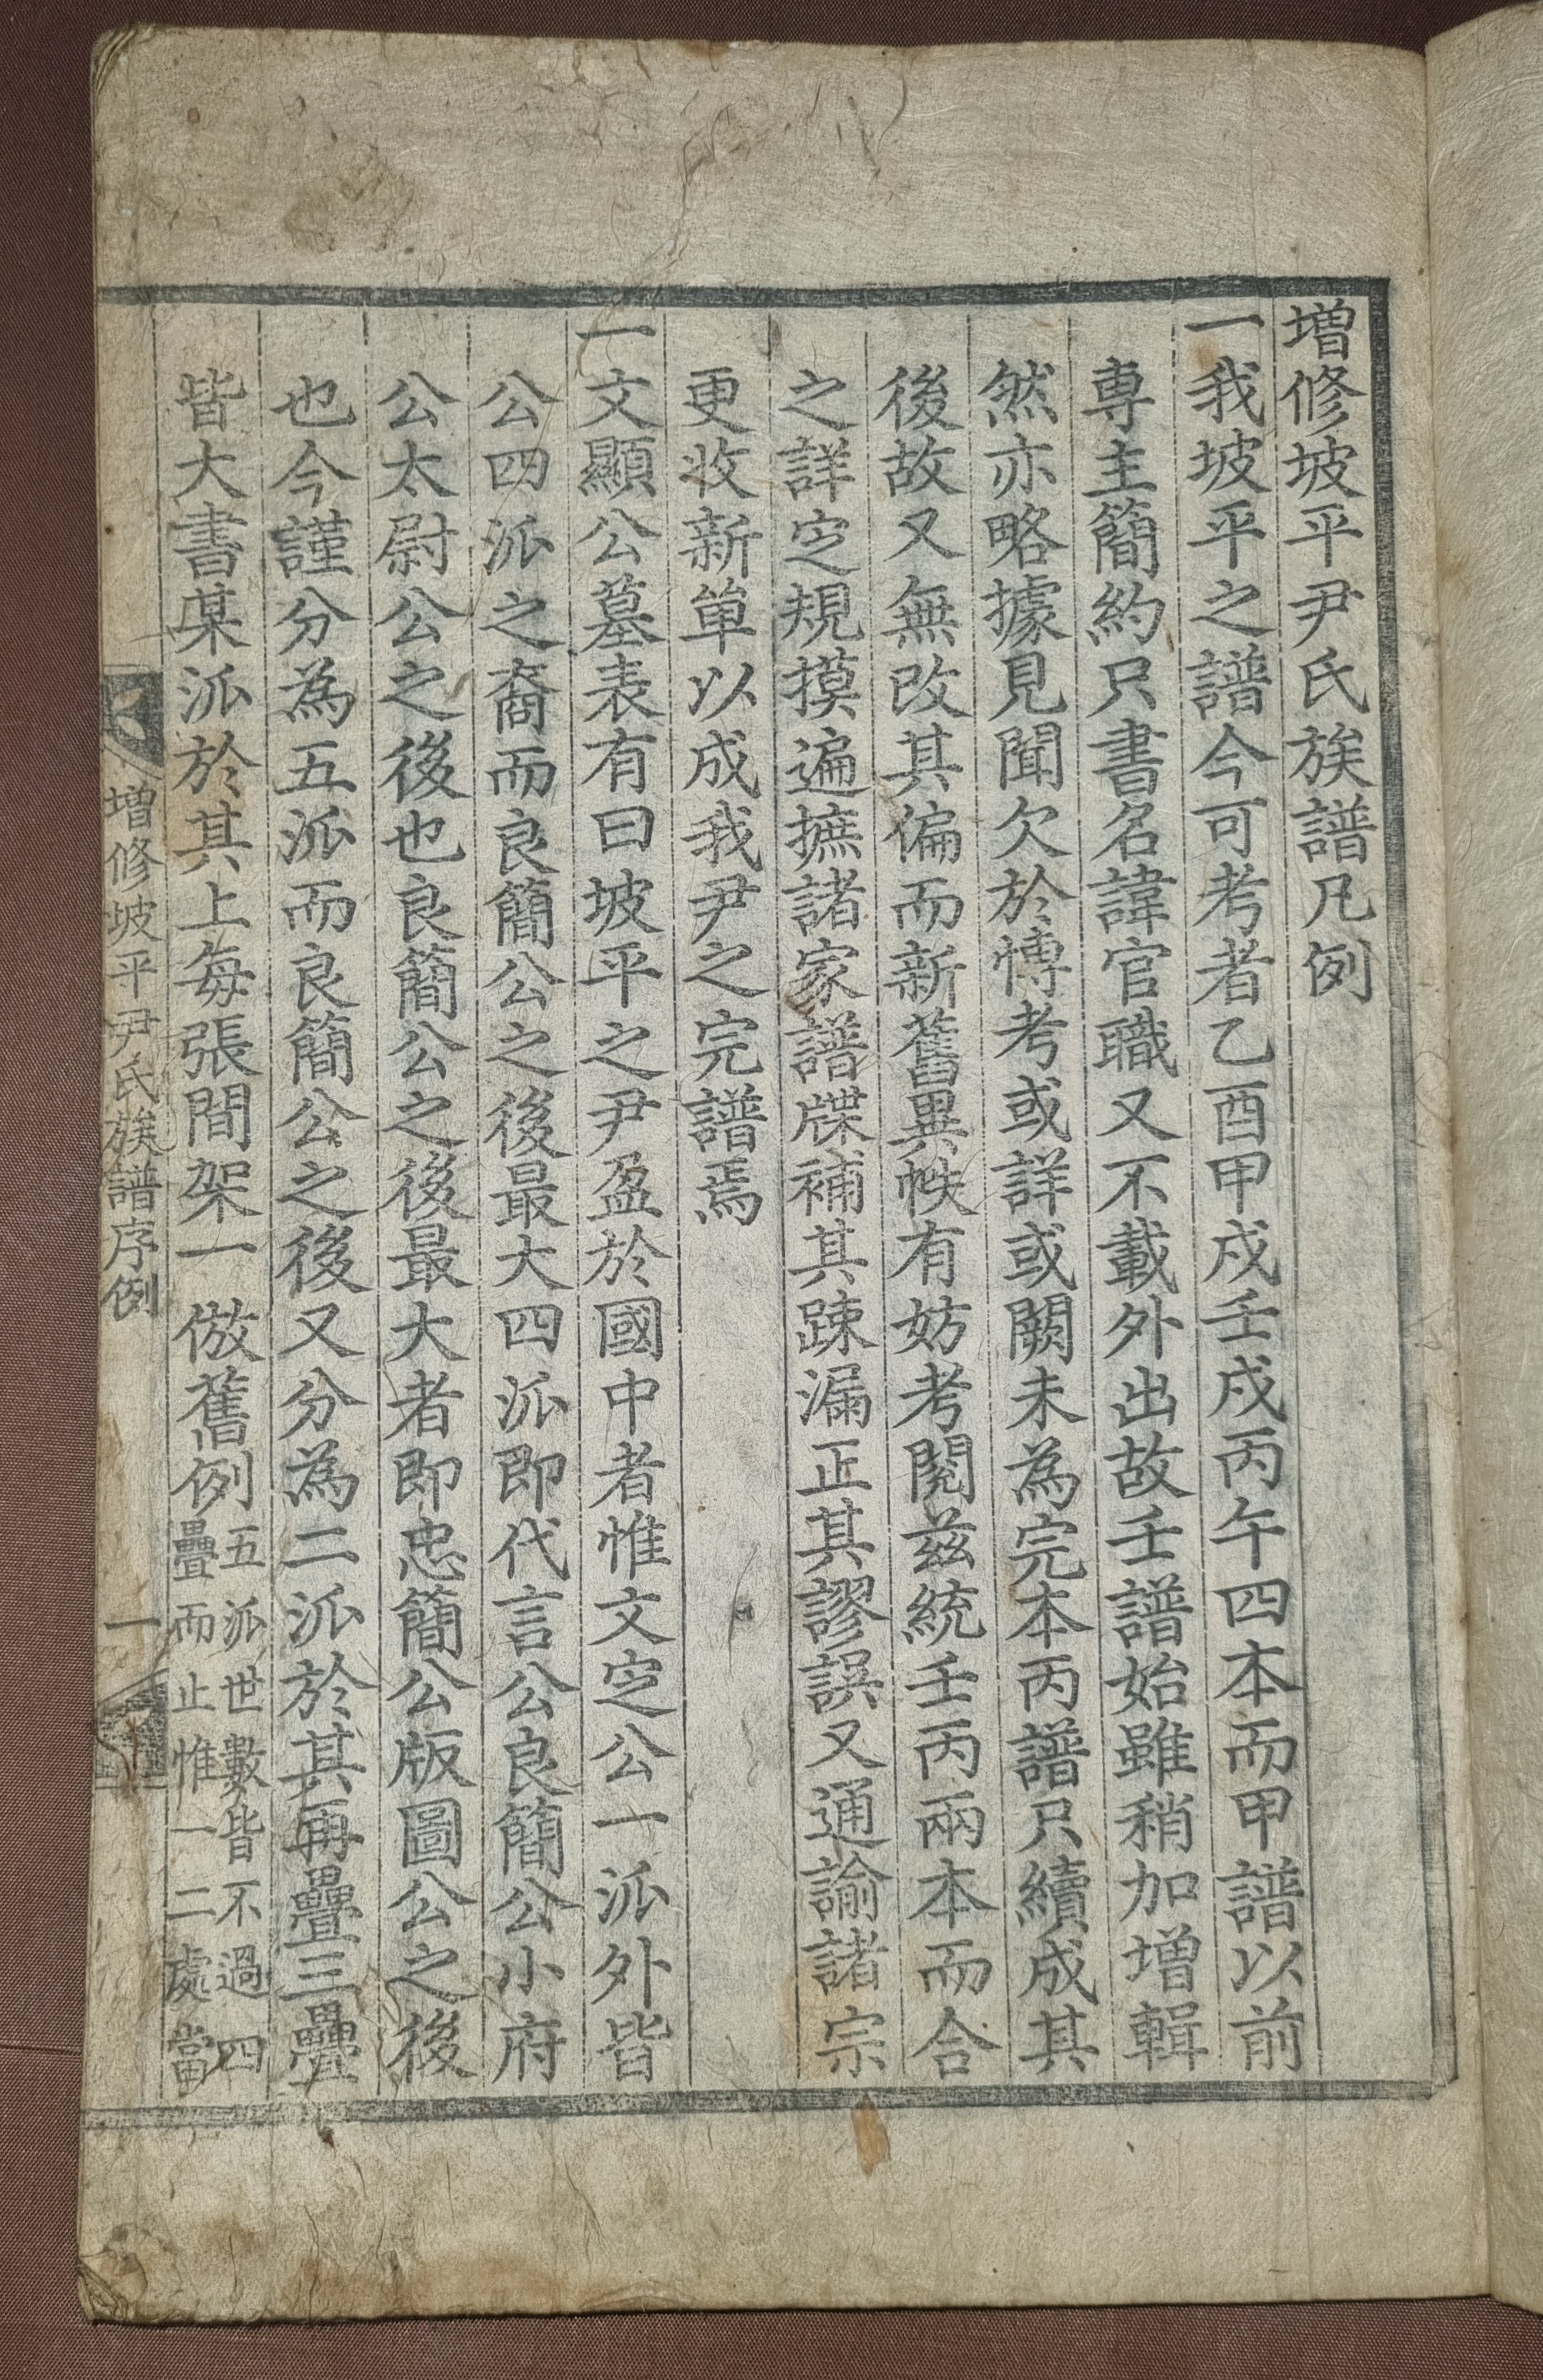 增修坡平尹氏族譜凡例
一我坡平之譜今可考者乙酉甲戍壬戍丙午四本而甲譜以前
專主簡約只書名諱官職又不載外出故壬譜始雖稍加增輯
然亦略據見聞欠於愽考或詳或闕未為完本丙譜只續成其
後故又無改其偏而新舊異帙有妨考閱玆統壬丙兩本而合
之詳㝎規摸遍摭諸家譜牒補其踈漏正其謬誤又通諭諸宗
更收新單以成我尹之完譜焉
一文顯公墓表有曰坡平之尹盈於國中者惟文㝎公一派外皆
公四派之裔而良簡公之後最大四派即代言公良簡公小府
公太尉公之後也良簡公之後最大者即忠簡公版圖公之後
也今謹分為五派而良簡公之後又分為二派於其再疊三疊
皆大書某派於其上每張間架一倣舊例五派世數皆不過四
疊而止惟一二處當
增修坡平尹氏族譜序例
一